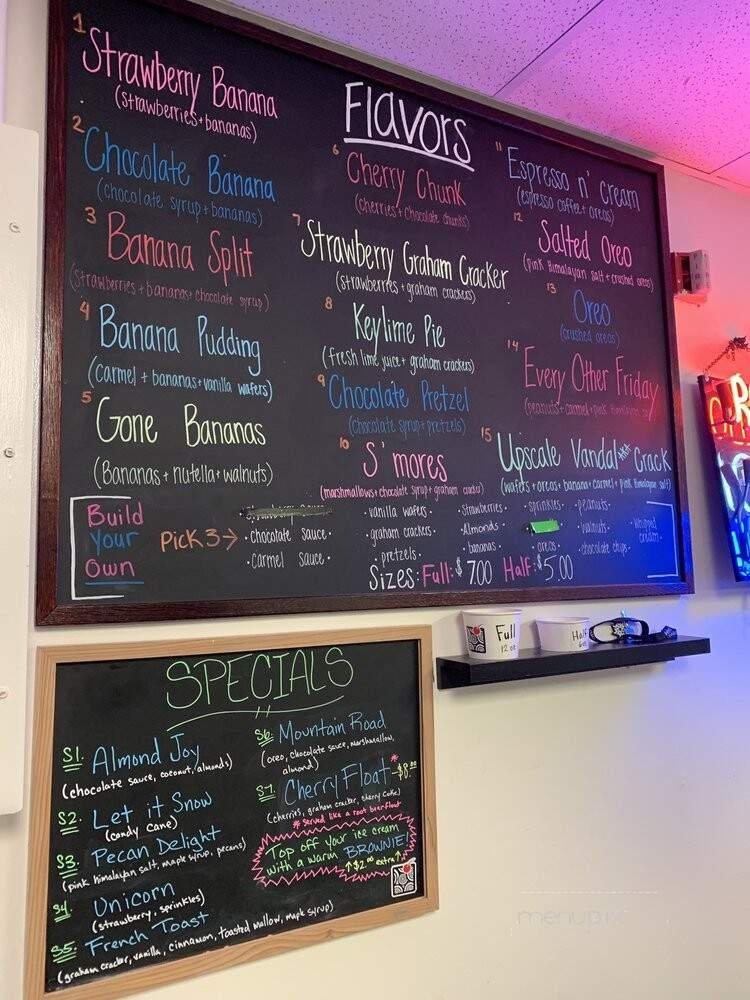 Flavors
1 Strawberry Banana
(strawberries + bananas)
2 Chocolate Banana
(chocolate syrup + bananas)
3 Banana Split
(strawberries + bananas + chocolate syrup)
4 Banana Pudding
(carmel + bananas + vanilla wafers)
5 Gone Bananas
(Bananas + nutella + walnuts)
6 Cherry Chunk
(cherries + chocolate chunks)
7 Strawberry Graham Cracker
(strawberries + graham crackers)
8 Keylime Pie
(fresh lime juice + graham crackers)
9 Chocolate Pretzel
(chocolate syrup + pretzels)
10 S'mores
(marshmallows + chocolate syrup + graham cracker)
11 Espresso n' cream
(espresso coffee + oreos)
12 Salted Oreo
(pink Himalayan salt + crushed oreos)
13 Oreo
(crushed oreos)
14 Every Other Friday
(peanuts + carmel + pink himalayan salt)
15 Upscale Vandal Crack
(wafers + oreos + banana + carmel + pink Himalayan salt)
Build
Your
Own
Pick 3 →
• chocolate sauce •
• carmel sauce •
• vanilla wafers •
• graham crackers •
• pretzels •
• strawberries •
• Almonds •
• bananas •
• sprinkles •
• oreos •
• peanuts •
• walnuts •
• chocolate chips •
• whipped cream •
Sizes: Full: $7.00 Half: $5.00
Full
12 oz
Half
6 oz
SPECIALS
S1. Almond Joy
(chocolate sauce, coconut, almonds)
S2. Let it Snow
(candy cane)
S3. Pecan Delight
(pink himalayan salt, maple syrup, pecans)
S4. Unicorn
(strawberry, sprinkles)
S5. French Toast
(graham cracker, vanilla, cinnamon, toasted mallow, maple syrup)
S6. Mountain Road
(oreo, chocolate sauce, marshmallow,
almond)
S7. Cherry Float * - $8.00
(cherries, graham cracker, cherry Coke)
* Served like a root beer float
Top off your ice cream
with a warm BROWNIE!
↑ $2.00 extra ↑
menupix